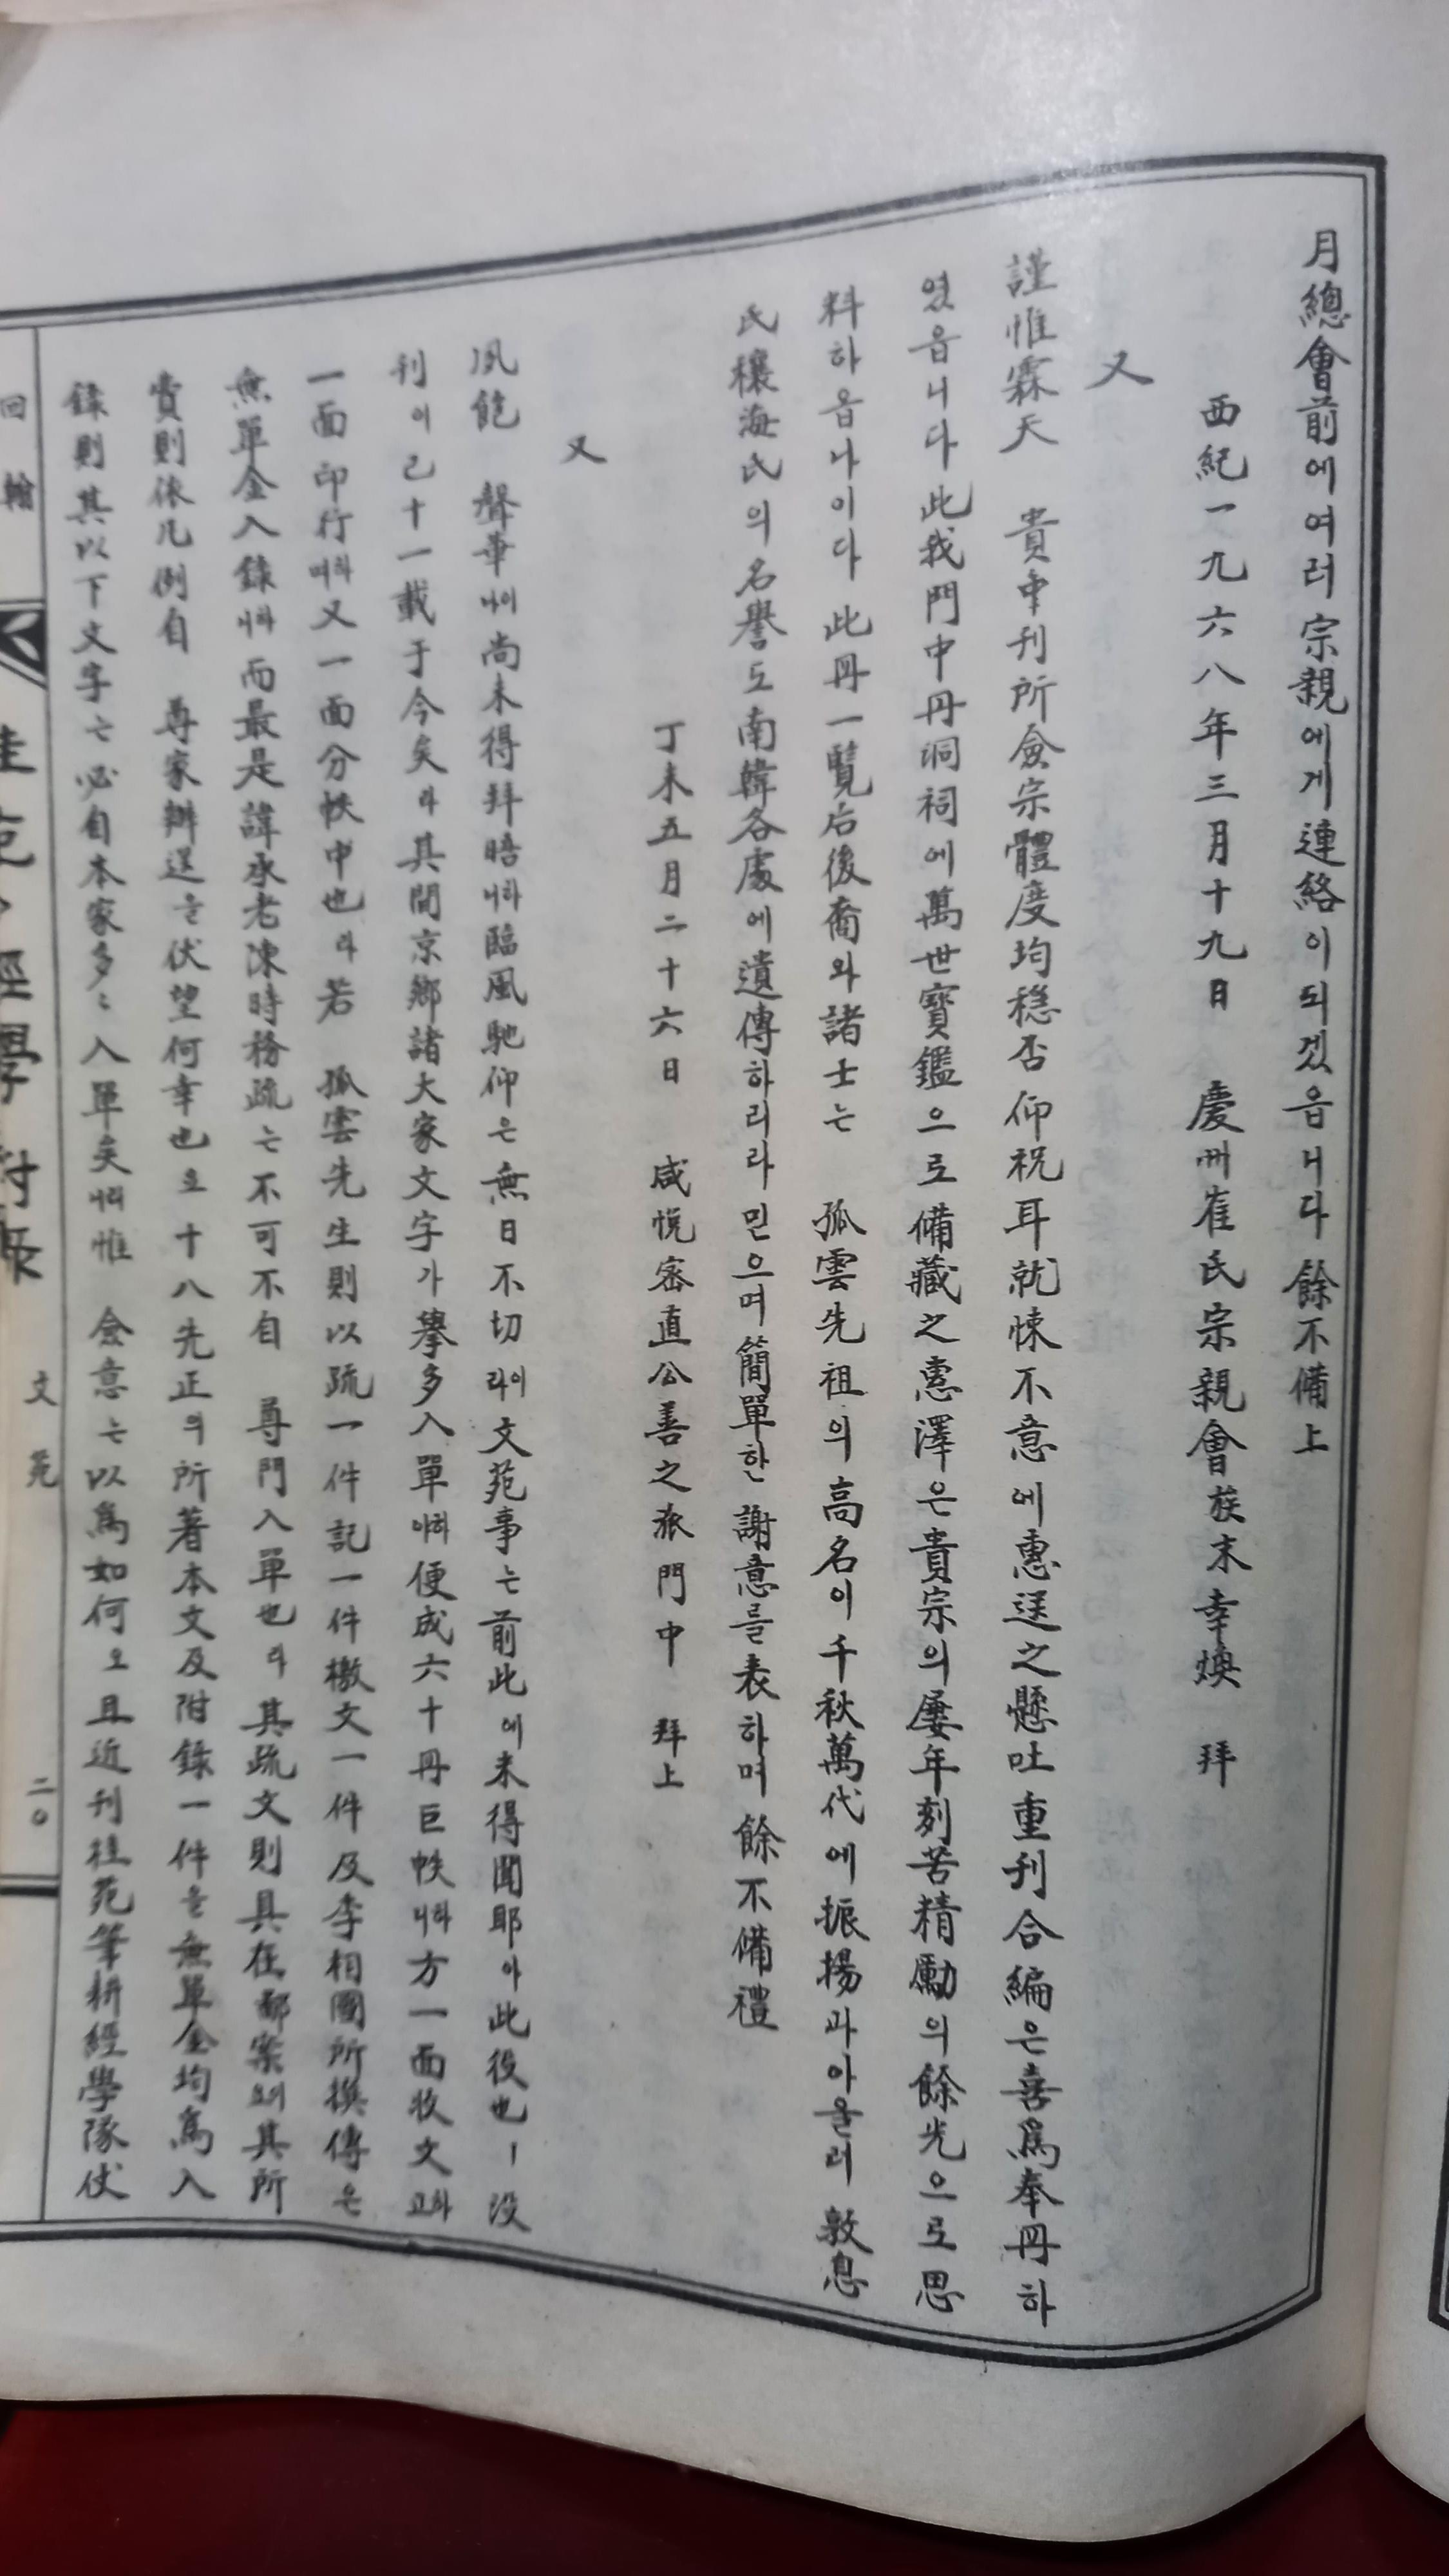 月總會前에여러宗親에게連絡이되겠읍니다餘不備上
西紀一九六八年三月十九日 慶州崔氏宗親會族末幸煥 拜
又
謹惟霖天 貴中刊所僉宗體度均穩否仰祝耳就悚不意에惠送之懸吐重刊合編은喜爲奉丹하
였읍니다此我門中丹洞祠에萬世寶鑑으로備藏之惠澤은貴宗의屢年刻苦精勵의餘光으로思
料하옵나이다此丹一覽后後裔와諸士는 孤雲先祖의高名이千秋萬代에振揚과아울러敦息
氏穰海氏의名譽도南韓各處에遺傳하리라믿으며簡單한謝意를表하며餘不備禮
丁未五月二十六日 咸悅密直公善之派門中 拜上
又
夙飽 聲華이나尚未得拜晤하니臨風馳仰은無日不切이라文苑事는前此에未得聞耶아此役也ㅣ沒
刊이已十一載于今矣라其間京鄉諸大家文字가擧多入單하야便成六十丹巨帙하니方一面收文하고
一面印行하며又一面分帙中也라若 孤雲先生則以疏一件記一件檄文一件及李相國所撰傳은
無單金入錄하니而最是諱承老陳時務疏는不可不自 尊門入單也라其疏文則具在鄙案하되其所
費則依凡例自 尊家辦送을伏望何幸也오十八先正의所著本文及附錄一件을無單金均爲入
錄則其以下文字는必自本家多々入單矣리니惟 僉意는以爲如何오且近刊桂苑筆耕經學隊伏
回翰
文苑
二〇